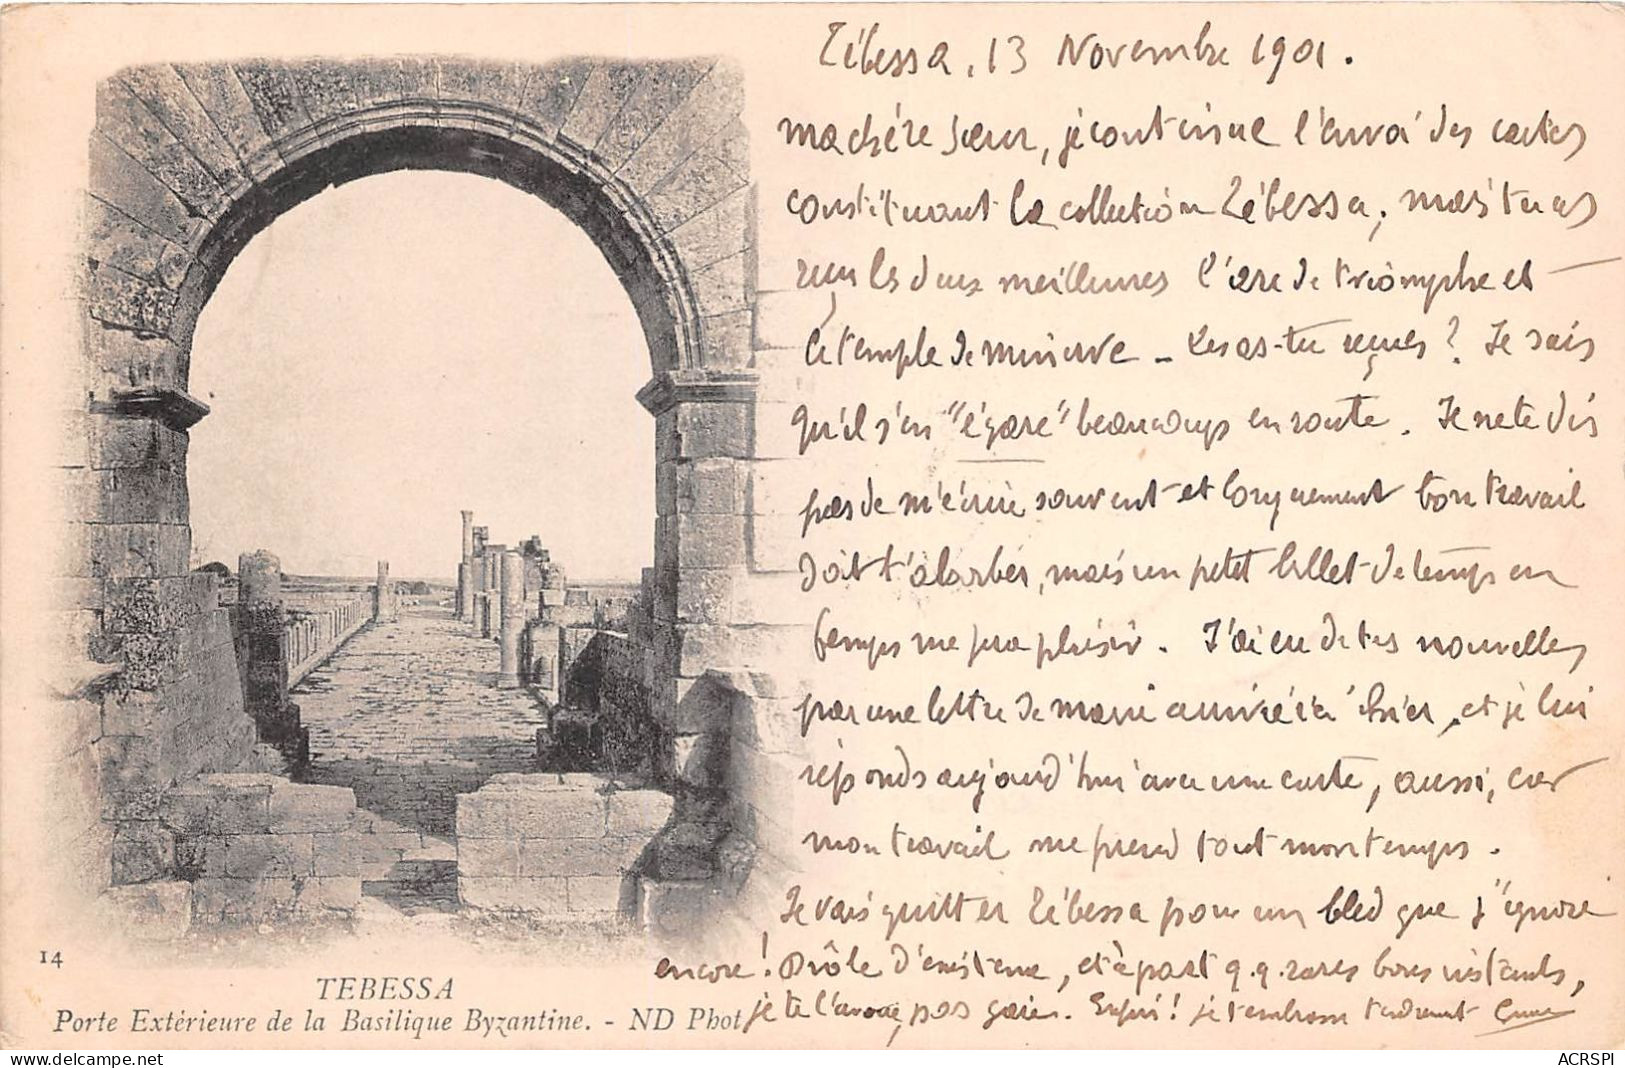 Tébessa, 13 Novembre 1901.
ma chère sœur, je continue l'envoi des cartes
constituant la collection Tébessa, mais tu as
reçu les deux meilleures l'arc de triomphe et
le temple de Minerve - Les as-tu reçues ? Je sais
qu'il s'en "égare" beaucoup en route. Je ne te dis
pas de m'écrire souvent et longuement ton travail
doit t'absorber, mais un petit billet de temps en
temps me fera plaisir. J'ai eu de tes nouvelles
par une lettre de Marie arrivée ici hier, et je lui
réponds aujourd'hui avec une carte, aussi, car
mon travail me prend tout mon temps.
Je vais quitter Tébessa pour un bled que j'ignore
encore ! Drôle d'existence, et à part q.q. rares bons instants,
je te l'avoue, pas gaie. Enfin ! je t'embrasse tendrement
14
TEBESSA
Porte Extérieure de la Basilique Byzantine. - ND Phot
ACRSPI